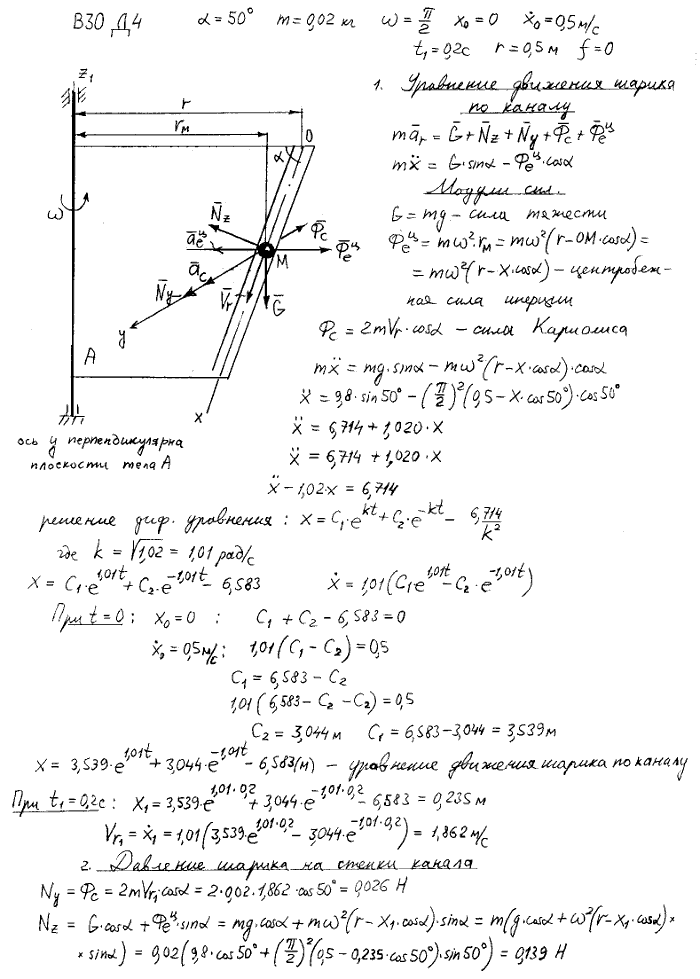 В30 Д4 α = 50° m = 0,02 кг ω = π/2 x₀ = 0 ẋ₀ = 0,5 м/с
t₁ = 0,2с r = 0,5 м f = 0
1. Уравнение движения шарика
по каналу
mā_r = Ḡ + N̄_z + N̄_y + Φ̄_c + Φ̄_e^ц
mẍ = G·sinα − Φ_e^ц·cosα
Модули сил.
G = mg – сила тяжести
Φ_e^ц = mω²·r_м = mω²(r − OM·cosα) =
= mω²(r − x·cosα) – центробеж-
ная сила инерции
Φ_c = 2mV_r·cosα – сила Кариолиса
mẍ = mg·sinα − mω²(r − x·cosα)·cosα
ẍ = 9,8·sin50° − (π/2)²(0,5 − x·cos50°)·cos50°
ẍ = 6,714 + 1,020·x
ẍ = 6,714 + 1,020·x
ẍ − 1,02·x = 6,714
z₁
r
r_м
O
α
ω
N̄_z
Φ̄_c
ā_e^ц
Φ̄_e^ц
M
ā_c
N̄_y
V̄_r
Ḡ
y
A
x
ось y перпендикулярна
плоскости тела A
решение диф. уравнения : x = C₁·e^{kt} + C₂·e^{−kt} − 6,714/k²
где k = √1,02 = 1,01 рад/с
x = C₁·e^{1,01t} + C₂·e^{−1,01t} − 6,583 ẋ = 1,01(C₁e^{1,01t} − C₂·e^{−1,01t})
При t = 0 : x₀ = 0 : C₁ + C₂ − 6,583 = 0
ẋ₀ = 0,5 м/с : 1,01(C₁ − C₂) = 0,5
C₁ = 6,583 − C₂
1,01(6,583 − C₂ − C₂) = 0,5
C₂ = 3,044 м C₁ = 6,583 − 3,044 = 3,539 м
x = 3,539·e^{1,01t} + 3,044·e^{−1,01t} − 6,583 (м) – уравнение движения шарика по каналу
При t₁ = 0,2с : x₁ = 3,539·e^{1,01·0,2} + 3,044·e^{−1,01·0,2} − 6,583 = 0,235 м
V_{r1} = ẋ₁ = 1,01(3,539·e^{1,01·0,2} − 3,044·e^{−1,01·0,2}) = 1,862 м/с
2. Давление шарика на стенки канала
N_y = Φ_c = 2mV_{r1}·cosα = 2·0,02·1,862·cos50° = 0,026 Н
N_z = G·cosα + Φ_e^ц·sinα = mg·cosα + mω²(r − x₁·cosα)·sinα = m(g·cosα + ω²(r − x₁·cosα)×
× sinα) = 0,02(9,8·cos50° + (π/2)²(0,5 − 0,235·cos50°)·sin50°) = 0,139 Н